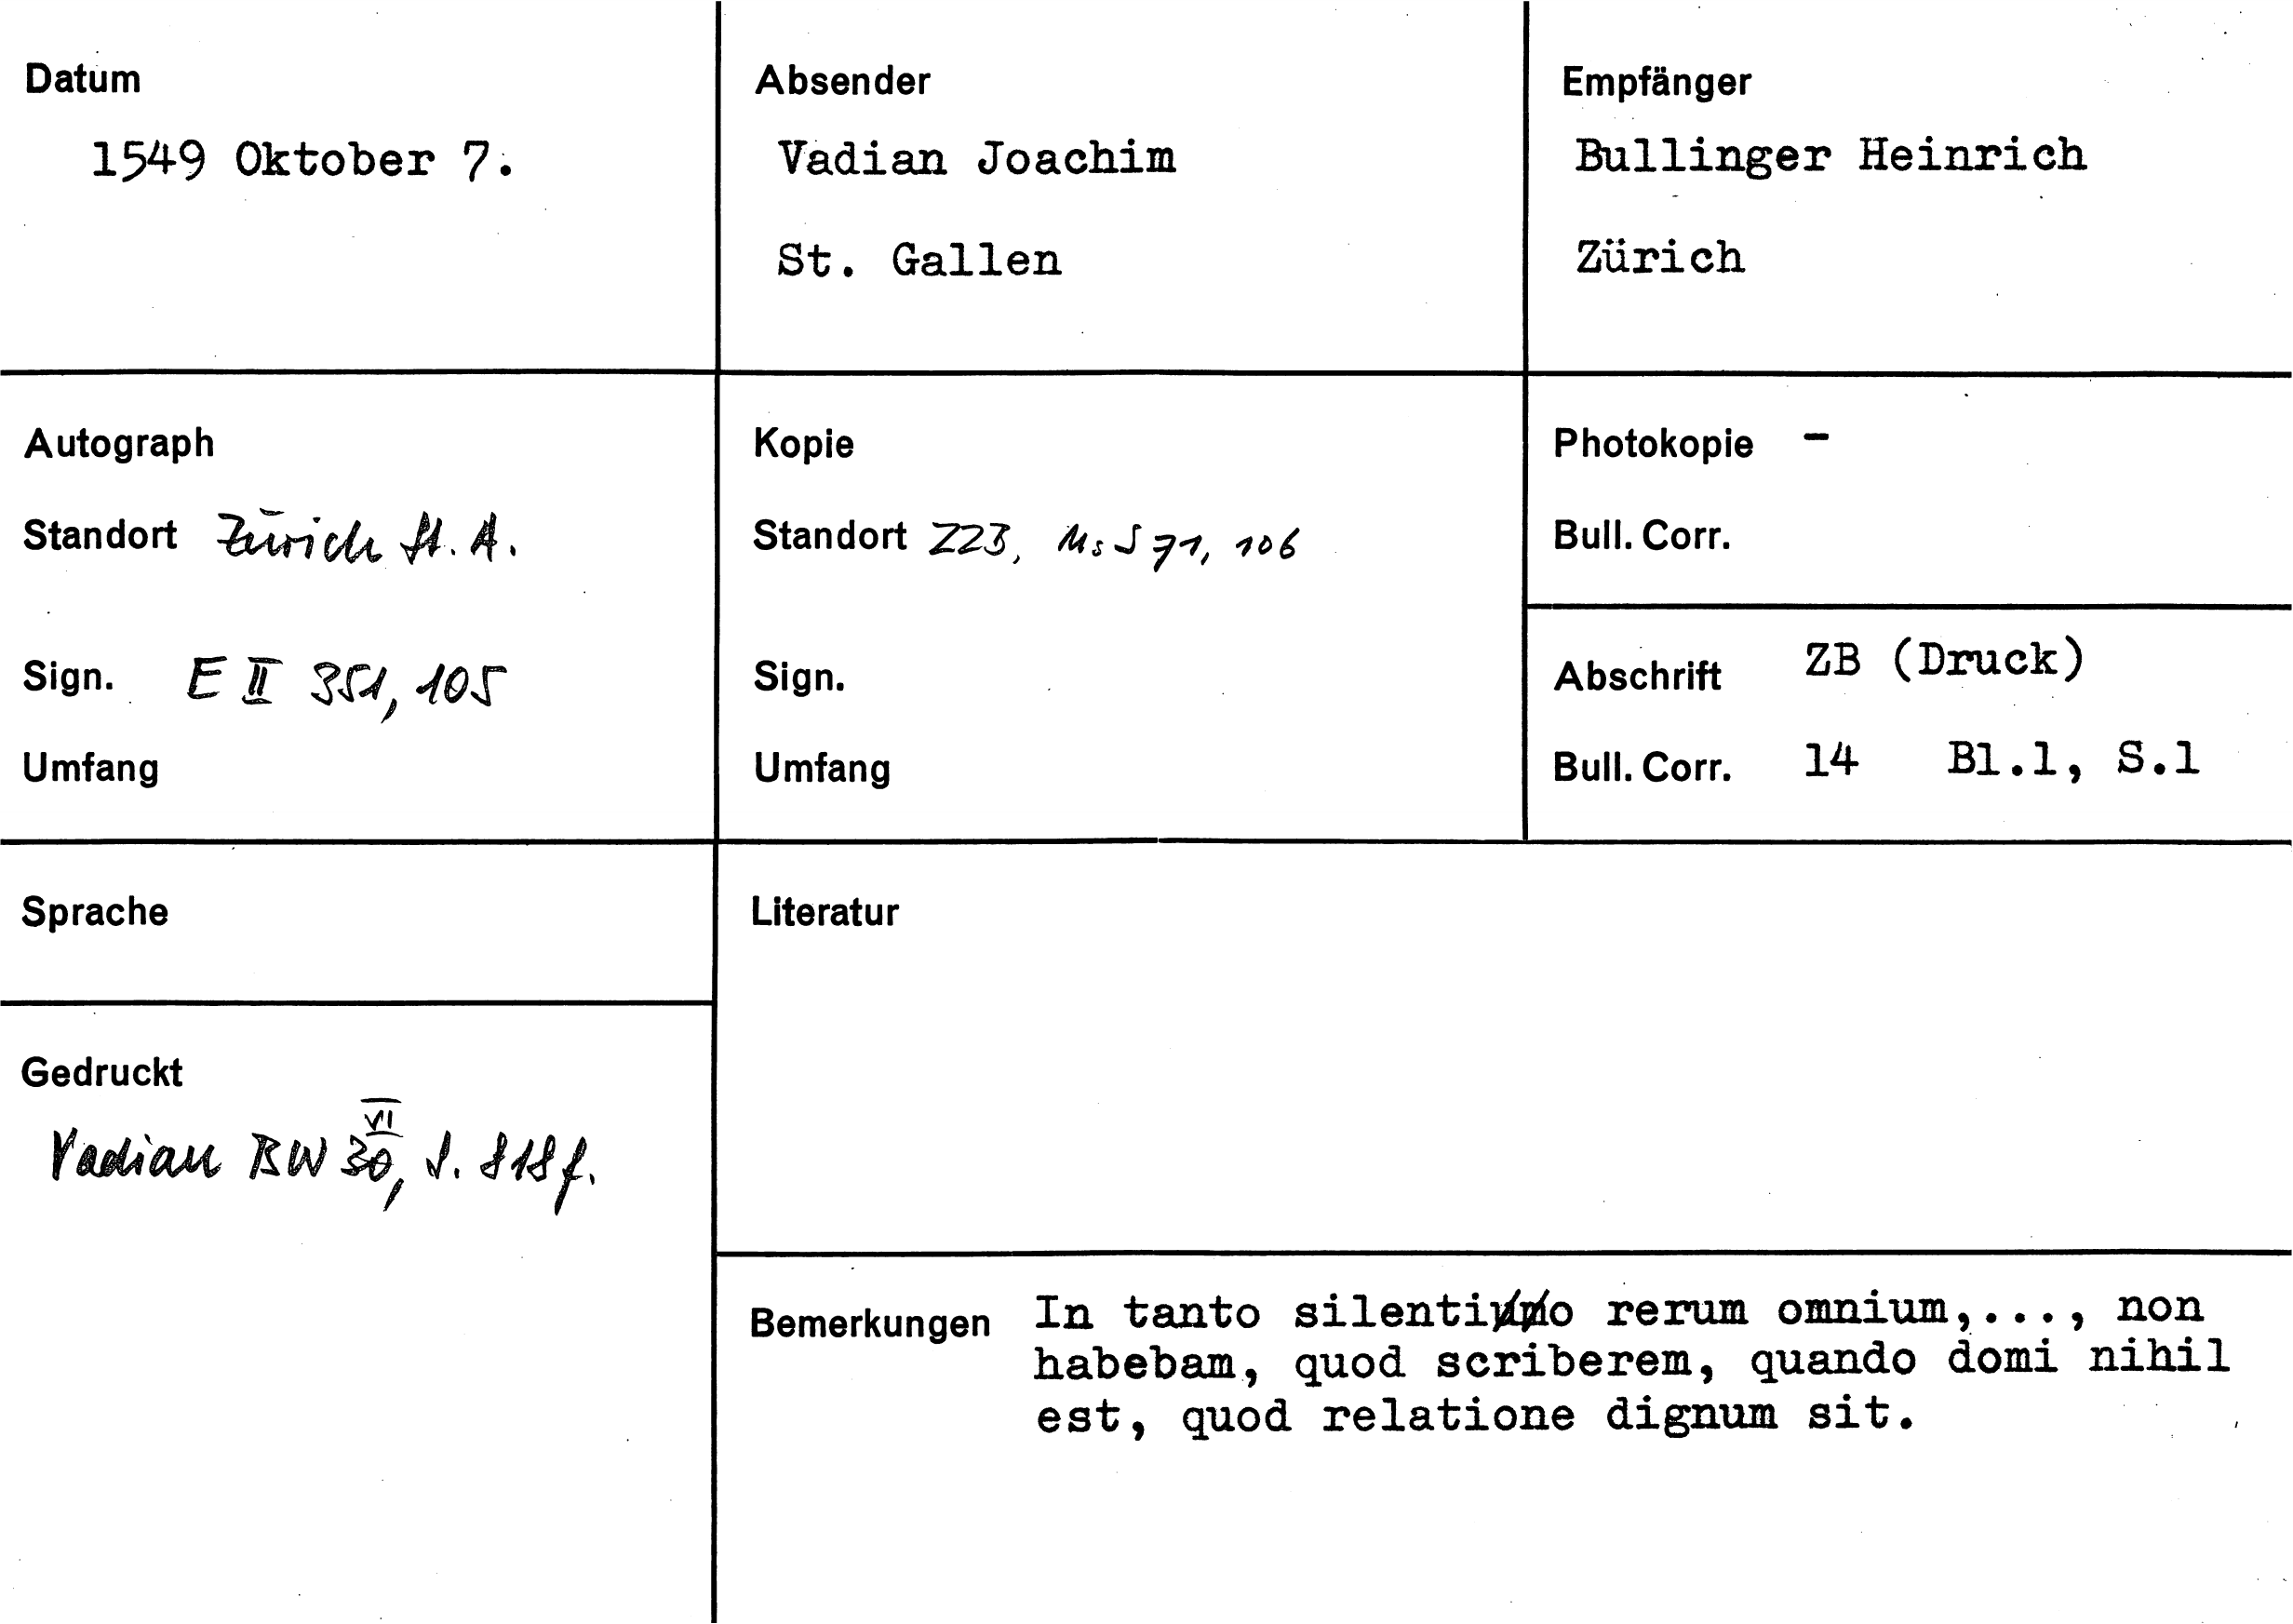 Datum
1549 Oktober 7.
Absender
Vadian Joachim
St. Gallen
Empfänger
Bullinger Heinrich
Zürich
Autograph
Standort Zürich St. A.
Sign. E II 351, 105
Umfang
Kopie
Standort ZZB, Ms S 71, 106
Sign.
Umfang
Photokopie -
Bull. Corr.
Abschrift ZB (Druck)
Bull. Corr. 14 Bl.1, S.1
Sprache
Gedruckt
VI
Vadian BW 30, S. 818f.
Literatur
Bemerkungen In tanto silentio rerum omnium,..., non
habebam, quod scriberem, quando domi nihil
est, quod relatione dignum sit.